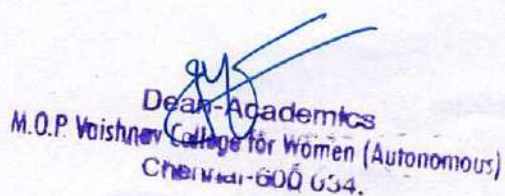 Dean-Academics
M.O.P. Vaishnav College for Women (Autonomous)
Chennai-600 034.